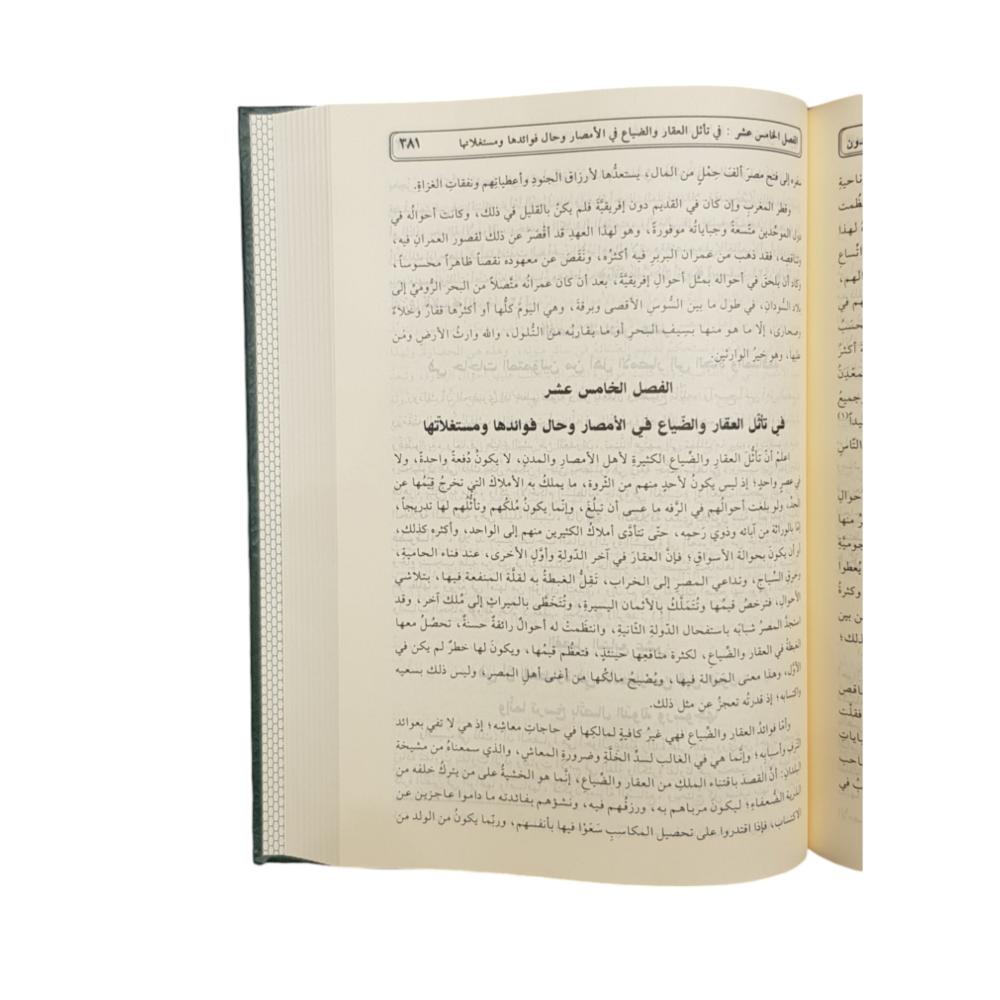 الفصل الخامس عشر : في تأثل العقار والضياع في الأمصار وحال فوائدها ومستغلاتها ٣٨١
سفره إلى فتح مصرَ ألفَ حِمْلٍ مَن المَال، يستعدُّها لأرزاق الجنودِ وأعطياتِهم ونفقاتِ الغزاةِ.
وقطر المغربِ وإن كان في القديم دون إفريقيَّة فلم يكنْ بالقليل في ذلك، وكانت أحوالُه في
دول الموحّدين متّسعةً وجباياتُه موفورةً، وهو لهذا العهدِ قد أقْصَرَ عن ذلك لقصور العمرانِ فيه،
وتناقصه، فقد ذهب من عمران البربرِ فيه أكثرُه، ونَقَصَ عن معهوده نقصاً ظاهراً محسوساً،
وكاد أن يلحقَ في أحواله بمثل أحوالِ إفريقيَّة، بعد أن كان عمرانُه متَّصلاً من البحر الرُّوميِّ إلى
بلاد السُّودانِ، في طول ما بين السُّوسِ الأقصى وبرقةَ، وهي اليومَ كلُّها أو أكثرُها قفارٌ وخلاءٌ
وصحارى، إلَّا ما هو منها بسِيفِ البحرِ أو ما يقاربُه من التُّلول، والله وارثُ الأرضِ ومَن
عليها، وهو خيرُ الوارثين.
الفصل الخامس عشر
في تأثّل العقار والضّياع في الأمصار وحال فوائدها ومستغلاّتها
اعلَمْ أنَّ تأثُّلَ العقارِ والضّياعِ الكثيرةِ لأهل الأمصارِ والمدنِ، لا يكونُ دُفعةً واحدةً، ولا
في عصرٍ واحدٍ؛ إذ ليس يكونُ لأحدٍ منهم من الثّروة، ما يملكُ به الأملاكَ التي تخرجُ قِيَمُها عن
الحدِّ، ولو بلغت أحوالُهم في الرَّفه ما عسى أن تبلُغَ، وإنّما يكونُ مُلْكُهم وتأثُّلُهم لها تدريجاً،
إمّا بالوراثة من آبائه وذوي رَحِمِه، حتّى تتأدَّى أملاكُ الكثيرين منهم إلى الواحد، وأكثره كذلك،
أو أن يكونَ بحوالة الأسواقِ؛ فإنَّ العقارَ في آخر الدّولةِ وأوَّلِ الأخرى، عند فناء الحاميةِ،
وخرقِ السِّياجِ، وتداعي المصرِ إلى الخراب، تَقِلُّ الغبطةُ به لقلَّة المنفعة فيها، بتلاشي
الأحوالِ، فترخصُ قيمُها وتُتملَّكُ بالأثمان اليسيرةِ، وتُتَخَطَّى بالميراث إلى مُلك آخر، وقد
استجدَّ المصرُ شبابَه باستفحال الدّولةِ الثّانيةِ، وانتظمَتْ له أحوالٌ رائقةٌ حسنةٌ، تحصُلُ معها
الغبطةُ في العقار والضّياع، لكثرة منافعِها حينئذٍ، فتعظُم قيمُها، ويكونَ لها خطرٌ لم يكن في
الأوَّل، وهذا معنى الحَوالة فيها، ويُصْبِحُ مالكُها من أغنى أهلِ المصرِ، وليس ذلك بسعيه
واكتسابه؛ إذ قدرتُه تعجزُ عن مثل ذلك.
وأمّا فوائدُ العقار والضّياع فهي غيرُ كافيةٍ لمالكِها في حاجات معاشِه؛ إذ هي لا تفي بعوائد
الترفِ وأسبابِه؛ وإنَّما هي في الغالب لسدِّ الخَلَّةِ وضرورةِ المعاش، والذي سمعناهُ من مشيخة
البلدانِ: أنَّ القصدَ باقتناء الملكِ من العقار والضّياع، إنَّما هو الخشيةُ على من يتركُ خلفه من
الذرية الضُّعفاءِ؛ ليكونَ مرباهم به، ورزقُهم فيه، ونشؤهم بفائدته ما داموا عاجزين عن
الاكتساب، فإذا اقتدروا على تحصيل المكاسبِ سَعَوْا فيها بأنفسهم، وربّما يكونُ من الولد من